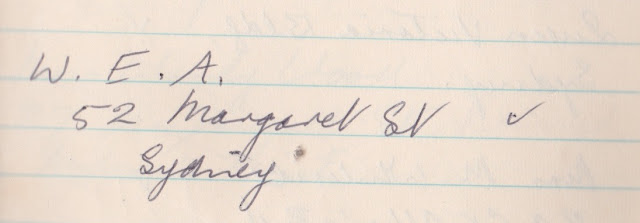 W. E. A.
52 Margaret St ✓
Sydney